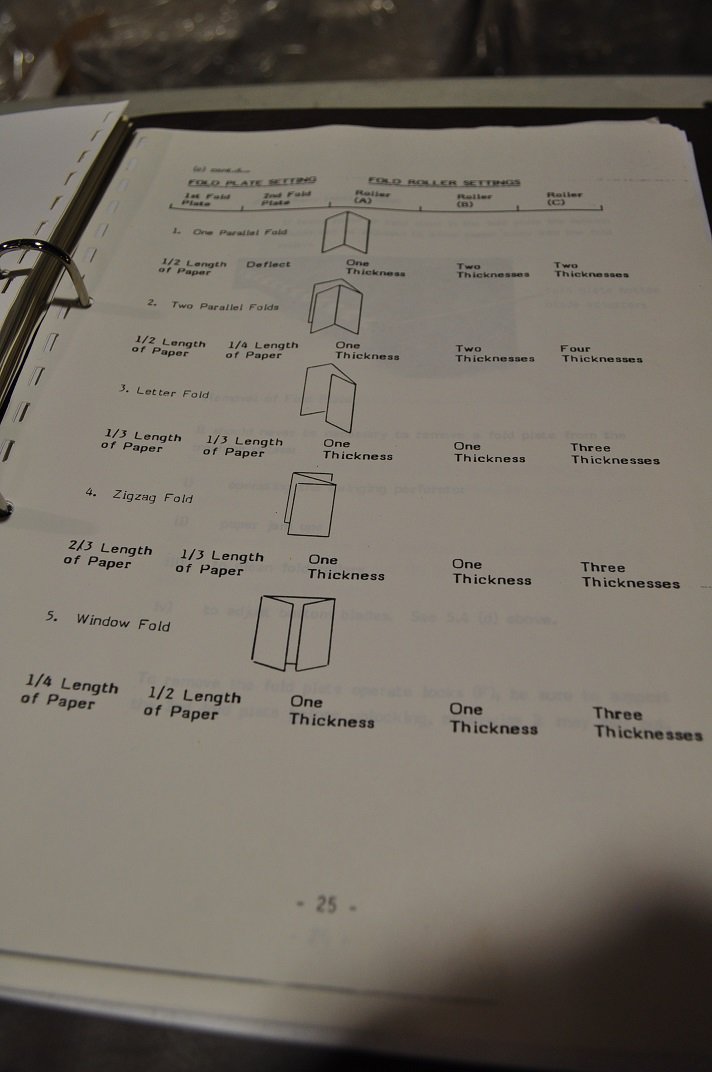 FOLD PLATE SETTING FOLD ROLLER SETTINGS
1st Fold 2nd Fold Roller Roller Roller
Plate Plate (A) (B) (C)
1. One Parallel Fold
1/2 Length Deflect One Two Two
of Paper Thickness Thicknesses Thicknesses
2. Two Parallel Folds
1/2 Length 1/4 Length One Two Four
of Paper of Paper Thickness Thicknesses Thicknesses
3. Letter Fold
1/3 Length 1/3 Length One One Three
of Paper of Paper Thickness Thickness Thicknesses
4. Zigzag Fold
2/3 Length 1/3 Length One One Three
of Paper of Paper Thickness Thickness Thicknesses
5. Window Fold
1/4 Length 1/2 Length One One Three
of Paper of Paper Thickness Thickness Thicknesses
- 25 -